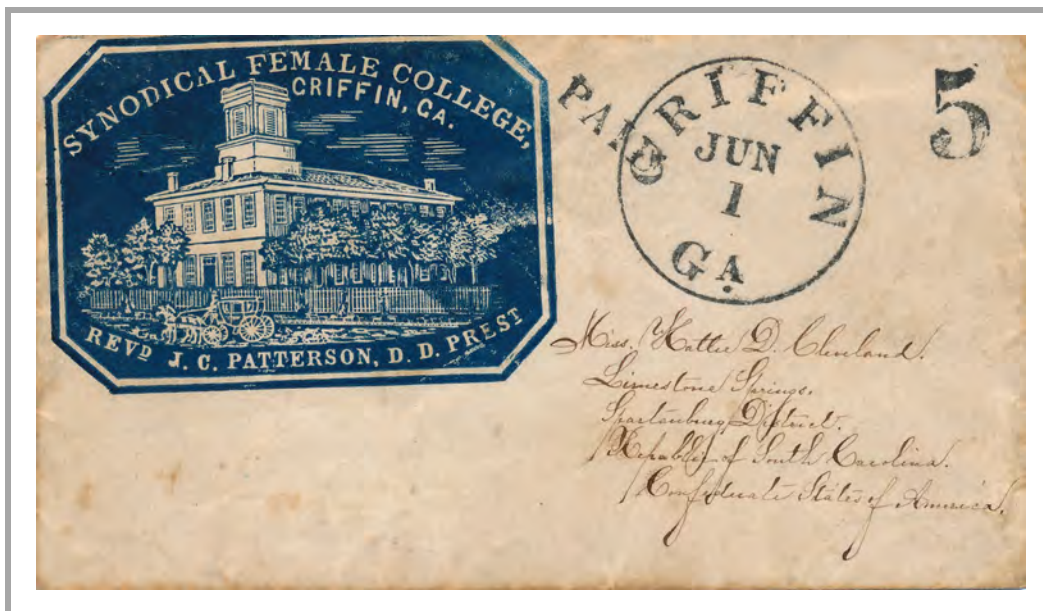 SYNODICAL FEMALE COLLEGE,
GRIFFIN, GA.
REVD J. C. PATTERSON, D. D. PREST
PAID
GRIFFIN
JUN
1
GA.
5
Miss. Hattie D. Cleveland.
Limestone Springs.
Spartanburg District.
Republic of South Carolina.
Confederate States of America.